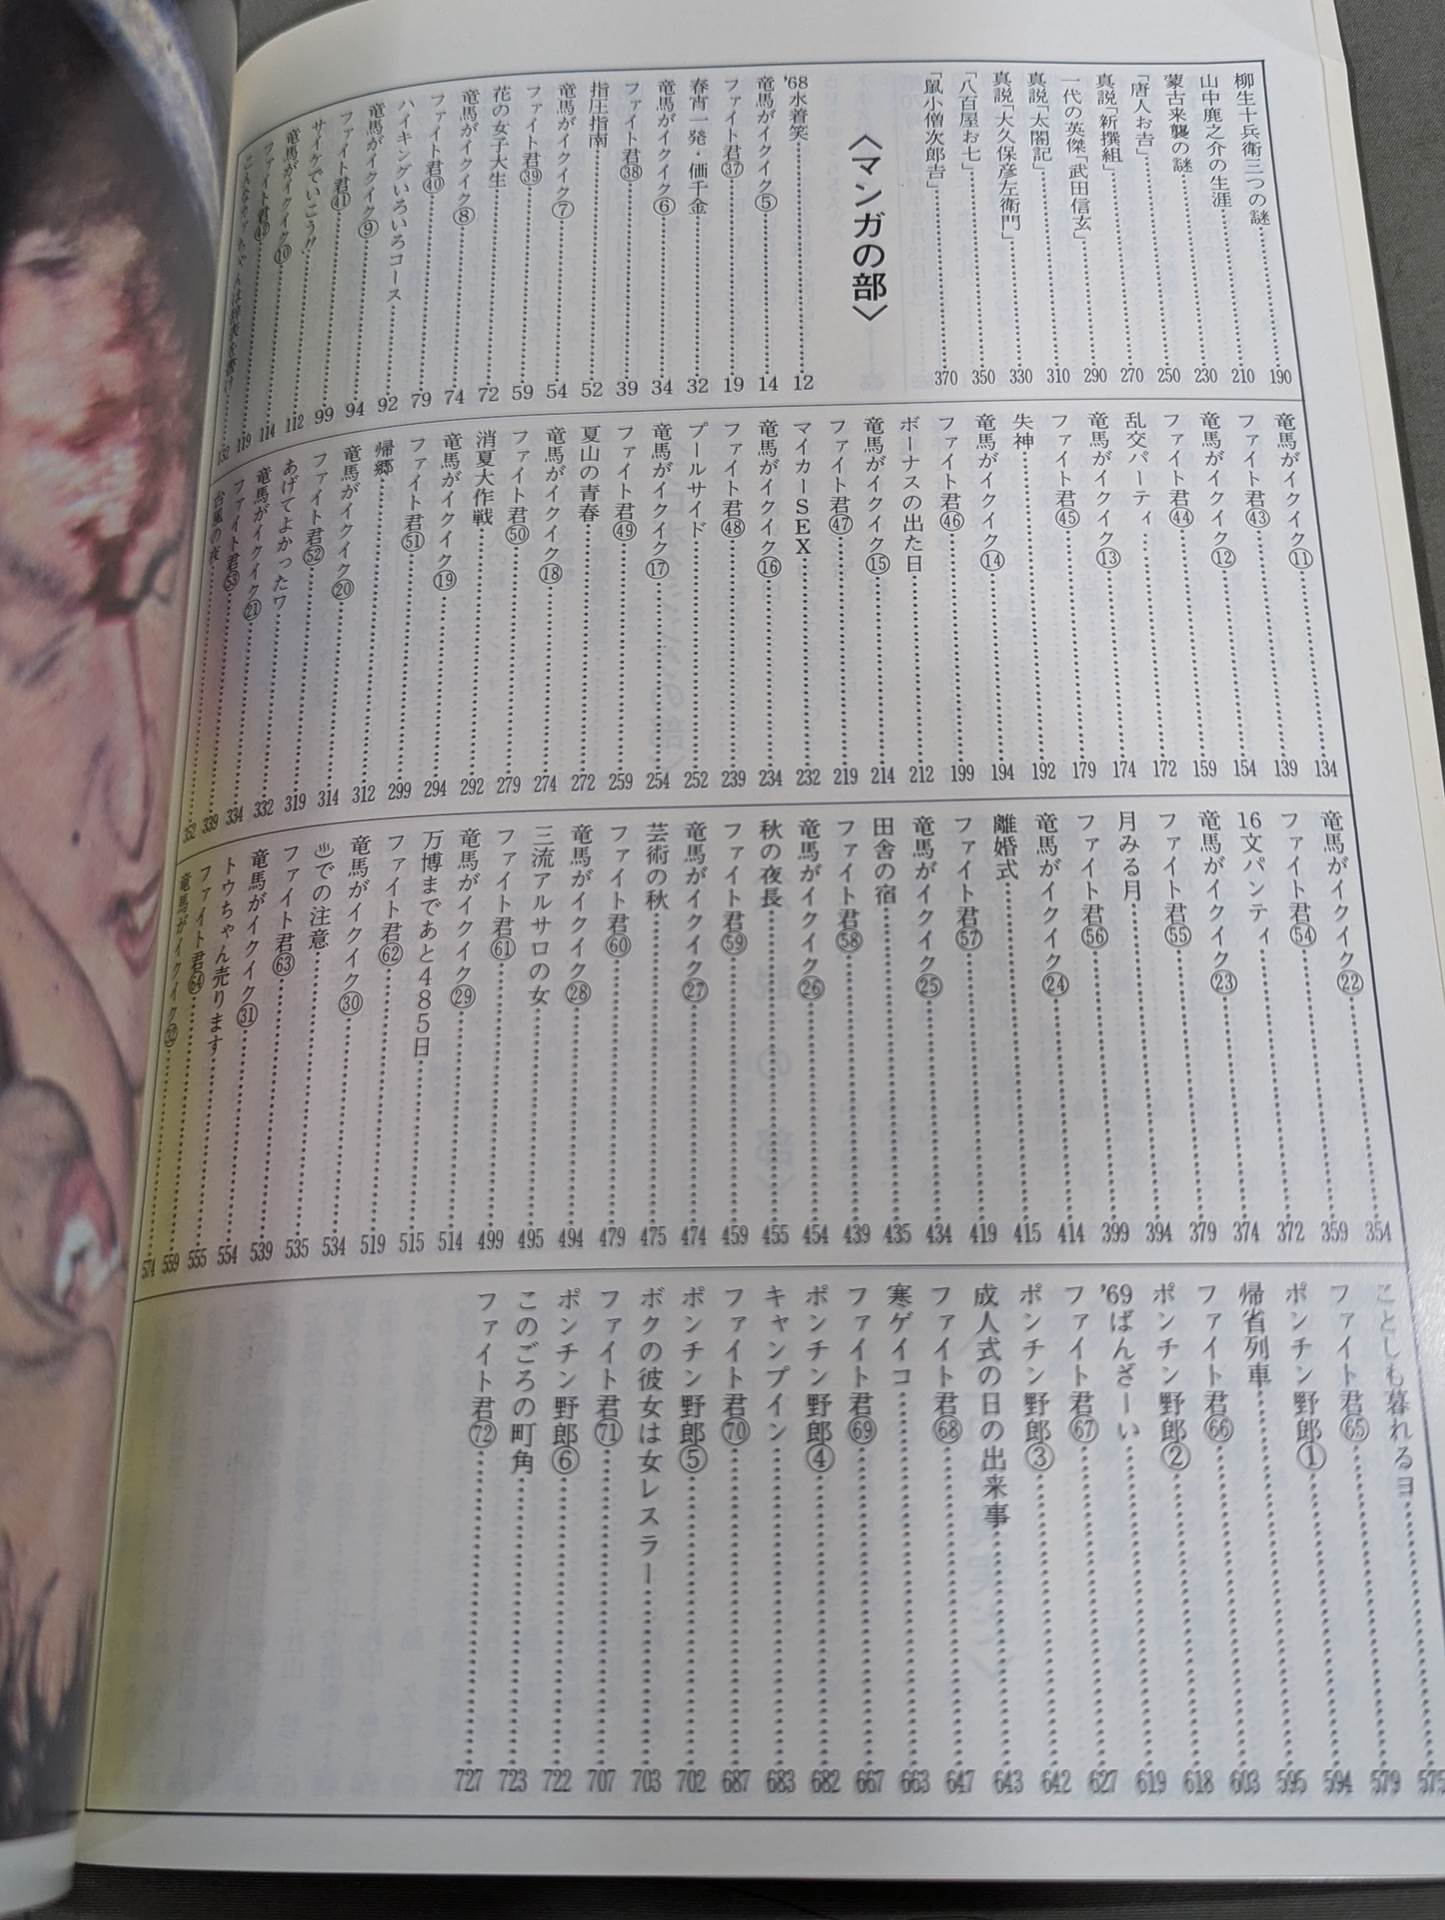 柳生十兵衛三つの謎 190
山中鹿之介の生涯 210
蒙古来襲の謎 230
「唐人お吉」 250
真説「新撰組」 270
一代の英傑「武田信玄」 290
真説「太閤記」 310
真説「大久保彦左衛門」 330
「八百屋お七」 350
「鼠小僧次郎吉」 370
〈マンガの部〉
'68水着笑 12
竜馬がイクイク⑤ 14
ファイト君㊲ 19
春宵一発・価千金 32
竜馬がイクイク⑥ 34
ファイト君㊳ 39
指圧指南 52
竜馬がイクイク⑦ 54
ファイト君㊴ 59
花の女子大生 72
竜馬がイクイク⑧ 74
ファイト君㊵ 79
ハイキングいろいろコース 92
竜馬がイクイク⑨ 94
ファイト君㊶ 99
サイケでいこう!! 112
竜馬がイクイク⑩ 114
ファイト君㊷ 119
132
竜馬がイクイク⑪ 134
ファイト君㊸ 139
竜馬がイクイク⑫ 154
ファイト君㊹ 159
乱交パーティ 172
竜馬がイクイク⑬ 174
ファイト君㊺ 179
失神 192
竜馬がイクイク⑭ 194
ファイト君㊻ 199
ボーナスの出た日 212
竜馬がイクイク⑮ 214
ファイト君㊼ 219
マイカーSEX 232
竜馬がイクイク⑯ 234
ファイト君㊽ 239
プールサイド 252
竜馬がイクイク⑰ 254
ファイト君㊾ 259
夏山の青春 272
竜馬がイクイク⑱ 274
ファイト君㊿ 279
消夏大作戦 292
竜馬がイクイク⑲ 294
ファイト君51 299
帰郷 312
竜馬がイクイク⑳ 314
ファイト君52 319
あげてよかったワ 332
竜馬がイクイク㉑ 334
ファイト君53 339
台風の夜 352
竜馬がイクイク㉒ 354
ファイト君54 359
16文パンティ 372
竜馬がイクイク㉓ 374
ファイト君55 379
月みる月 394
ファイト君56 399
竜馬がイクイク㉔ 414
離婚式 415
ファイト君57 419
竜馬がイクイク㉕ 434
田舎の宿 435
ファイト君58 439
竜馬がイクイク㉖ 454
秋の夜長 455
ファイト君59 459
竜馬がイクイク㉗ 474
芸術の秋 475
ファイト君60 479
竜馬がイクイク㉘ 494
三流アルサロの女 495
ファイト君61 499
竜馬がイクイク㉙ 514
万博まであと485日 515
ファイト君62 519
竜馬がイクイク㉚ 534
♨での注意 535
ファイト君63 539
竜馬がイクイク㉛ 554
トウちゃん売ります 555
ファイト君64 559
竜馬がイクイク㉜ 574
ことしも暮れるヨ 575
ファイト君65 579
ポンチン野郎① 594
帰省列車 595
ファイト君66 603
ポンチン野郎② 618
'69ばんざーい 619
ファイト君67 627
ポンチン野郎③ 642
成人式の日の出来事 643
ファイト君68 647
寒ゲイコ 663
ファイト君69 667
ポンチン野郎④ 682
キャンプイン 683
ファイト君70 687
ポンチン野郎⑤ 702
ボクの彼女は女レスラー 703
ファイト君71 707
ポンチン野郎⑥ 722
このごろの町角 723
ファイト君72 727